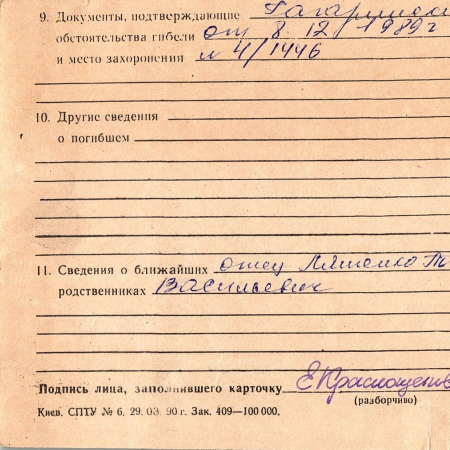 9. Документы, подтверждающие
обстоятельства гибели от 8.12/1989г
и место захоронения №4/1446
10. Другие сведения
о погибшем
11. Сведения о ближайших отец
родственниках Васильевич
Подпись лица, заполнившего карточку
(разборчиво)
Киев. СПТУ № 6. 29. 03. 90 г. Зак. 409—100 000.